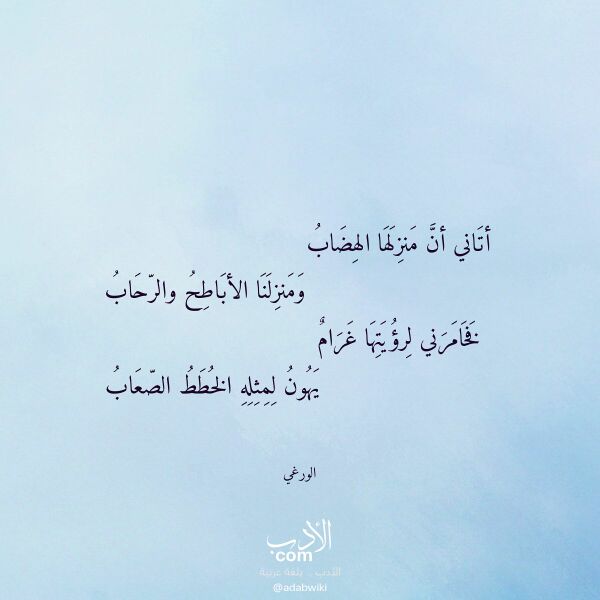 أتَاني أنَّ مَنزِلَهَا الهِضَابُ
وَمَنزِلَنَا الأبَاطِحُ والرّحَابُ
فَخَامَرَني لِرؤُيَتِهَا غَرَامٌ
يَهُونُ لِمِثِلِهِ الخُطَطُ الصّعَابُ
الورغي
الأدب
com
الأدب .. بلغة عربية
@adabwiki